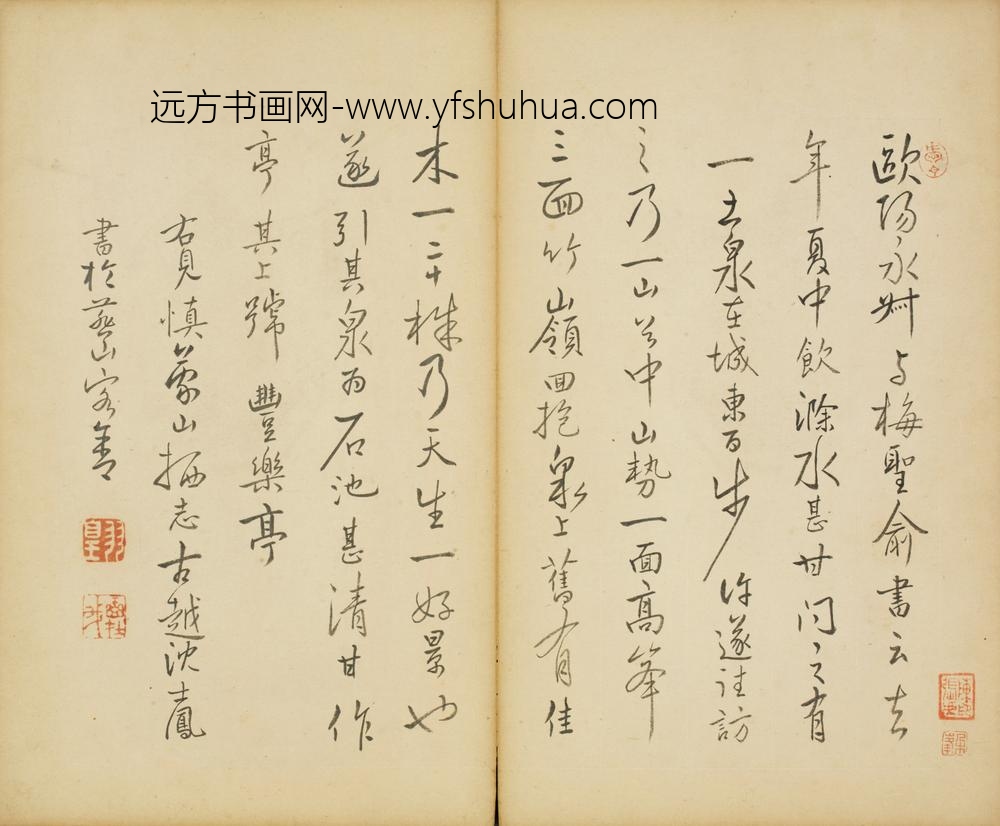 远方书画网-www.yfshuhua.com
歐陽永叔与梅聖俞書云去
年夏中飲滁水甚甘问之有
一土泉在城東百步许遂往訪
之乃一山谷中山勢一面高峯
三面竹嶺回抱泉上舊有佳
木一二十株乃天生一好景也
遂引其泉为石池甚清甘作
亭其上號豐樂亭
右見慎蒙山栖志古越沈士鳳
書於燕山客舍
羽皇